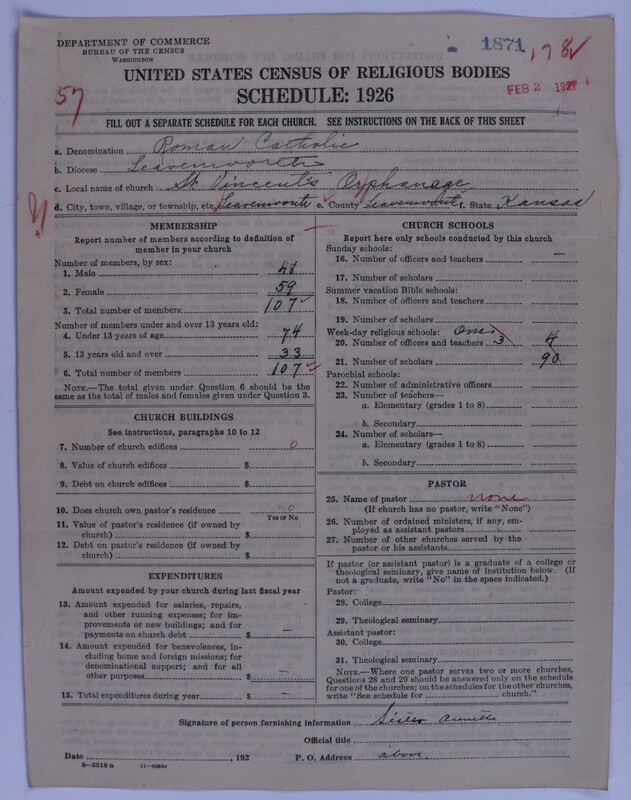 DEPARTMENT OF COMMERCE
BUREAU OF THE CENSUS
WASHINGTON
1871
178
57
UNITED STATES CENSUS OF RELIGIOUS BODIES
SCHEDULE: 1926
FEB 2 1927
FILL OUT A SEPARATE SCHEDULE FOR EACH CHURCH. SEE INSTRUCTIONS ON THE BACK OF THIS SHEET
a. Denomination Roman Catholic
b. Diocese Leavenworth
c. Local name of church St. Vincent's Orphanage
d. City, town, village, or township, etc. Leavenworth e. County Leavenworth f. State Kansas
MEMBERSHIP
Report number of members according to definition of member in your church
Number of members, by sex:
1. Male 48
2. Female 59
3. Total number of members 107
Number of members under and over 13 years old:
4. Under 13 years of age 74
5. 13 years old and over 33
6. Total number of members 107
NOTE.—The total given under Question 6 should be the same as the total of males and females given under Question 3.
CHURCH BUILDINGS
See instructions, paragraphs 10 to 12
7. Number of church edifices 0
8. Value of church edifices $
9. Debt on church edifices $
10. Does church own pastor's residence no
Yes or No
11. Value of pastor's residence (if owned by church) $
12. Debt on pastor's residence (if owned by church) $
EXPENDITURES
Amount expended by your church during last fiscal year
13. Amount expended for salaries, repairs, and other running expenses; for improvements or new buildings; and for payments on church debt $ —
14. Amount expended for benevolences, including home and foreign missions; for denominational support; and for all other purposes $ —
15. Total expenditures during year $ —
CHURCH SCHOOLS
Report here only schools conducted by this church
Sunday schools:
16. Number of officers and teachers —
17. Number of scholars
Summer vacation Bible schools:
18. Number of officers and teachers
19. Number of scholars
Week-day religious schools: One
20. Number of officers and teachers 3 4
21. Number of scholars 90
Parochial schools:
22. Number of administrative officers
23. Number of teachers—
a. Elementary (grades 1 to 8)
b. Secondary
24. Number of scholars—
a. Elementary (grades 1 to 8)
b. Secondary
PASTOR
25. Name of pastor none
(If church has no pastor, write "None")
26. Number of ordained ministers, if any, employed as assistant pastors
27. Number of other churches served by the pastor or his assistants
If pastor (or assistant pastor) is a graduate of a college or theological seminary, give name of institution below. (If not a graduate, write "No" in the space indicated.)
Pastor:
28. College
29. Theological seminary
Assistant pastor:
30. College
31. Theological seminary
NOTE.—Where one pastor serves two or more churches, Questions 28 and 29 should be answered only on the schedule for one of the churches; on the schedules for the other churches, write "See schedule for church."
Signature of person furnishing information Sister Annette
Official title
Date , 192 P. O. Address above
8—5318 a